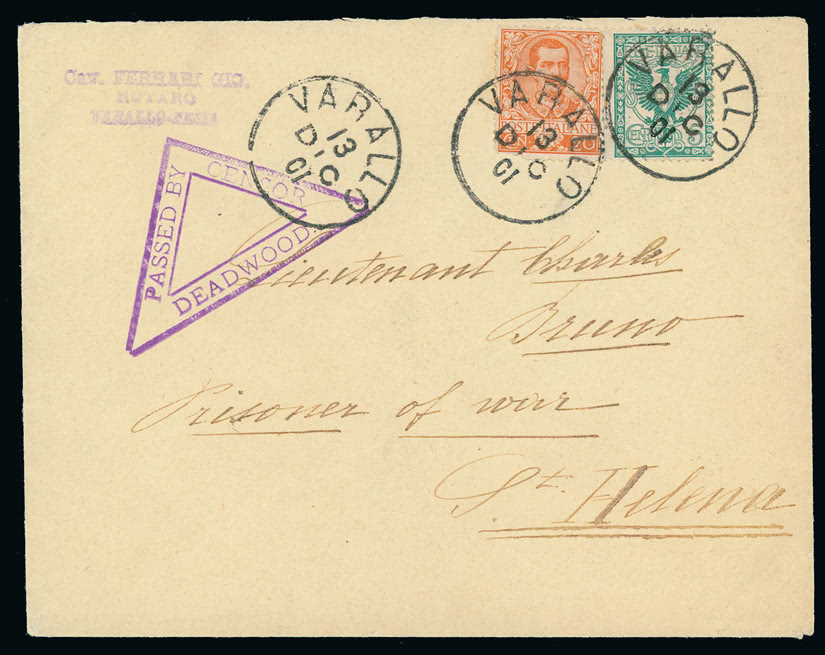 Cav. FERRARI GIO.
NOTARO
VARALLO-SESIA
VARALLO
13
DIC
01
VARALLO
13
DIC
01
VARALLO
13
DIC
01
POSTE ITALIANE
20
5
PASSED BY
CENSOR
DEADWOOD.
Lieutenant Charles
Bruno
Prisoner of war
St. Helena